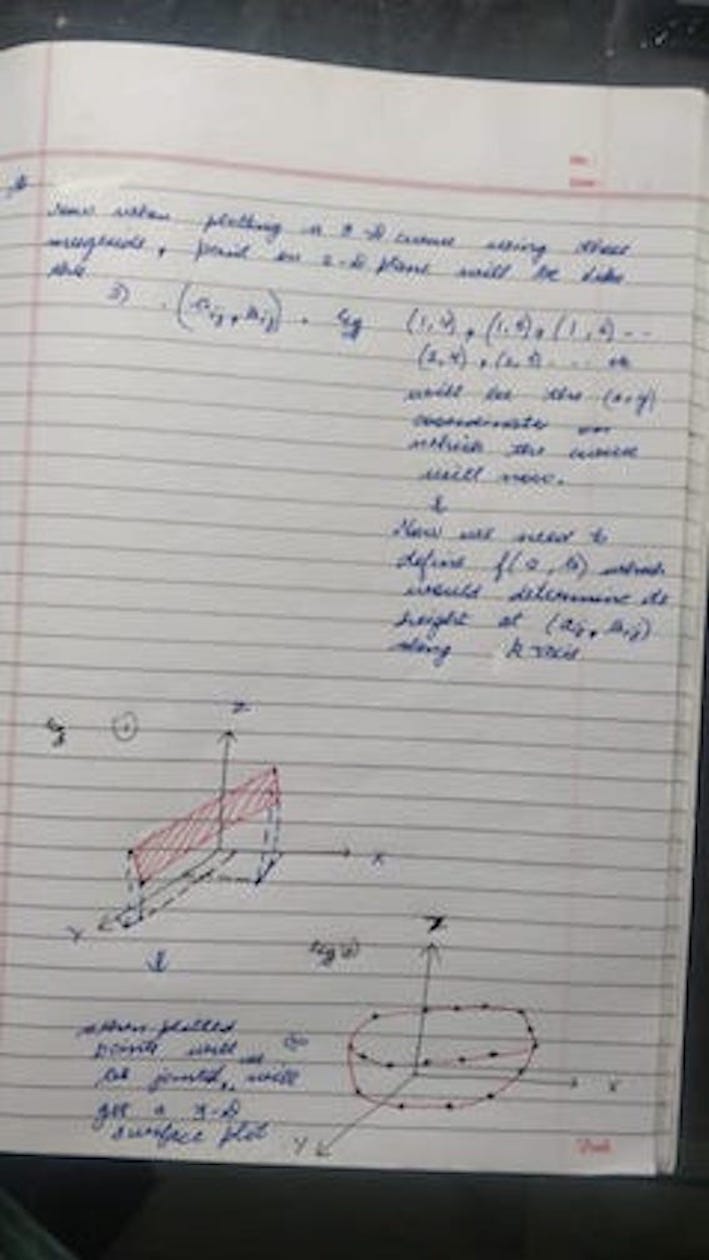 Now when plotting a 3-D curve using these
meshgrids, point on 2-D plane will be like
this
⇒ . (aij, bij) . Eg (1,4), (1,5), (1,6) --
(2,4), (2,5) ---
will be the (x,y)
coordinates on
which the curve
will
&
Now we need to
define f(a, b) which
would determine its
height at (aij, bij)
along axis
Eg
Z
X
Y
Eg
Z
X
Y
when plotted
points will
be joined, will
get a 3-D
surface plot